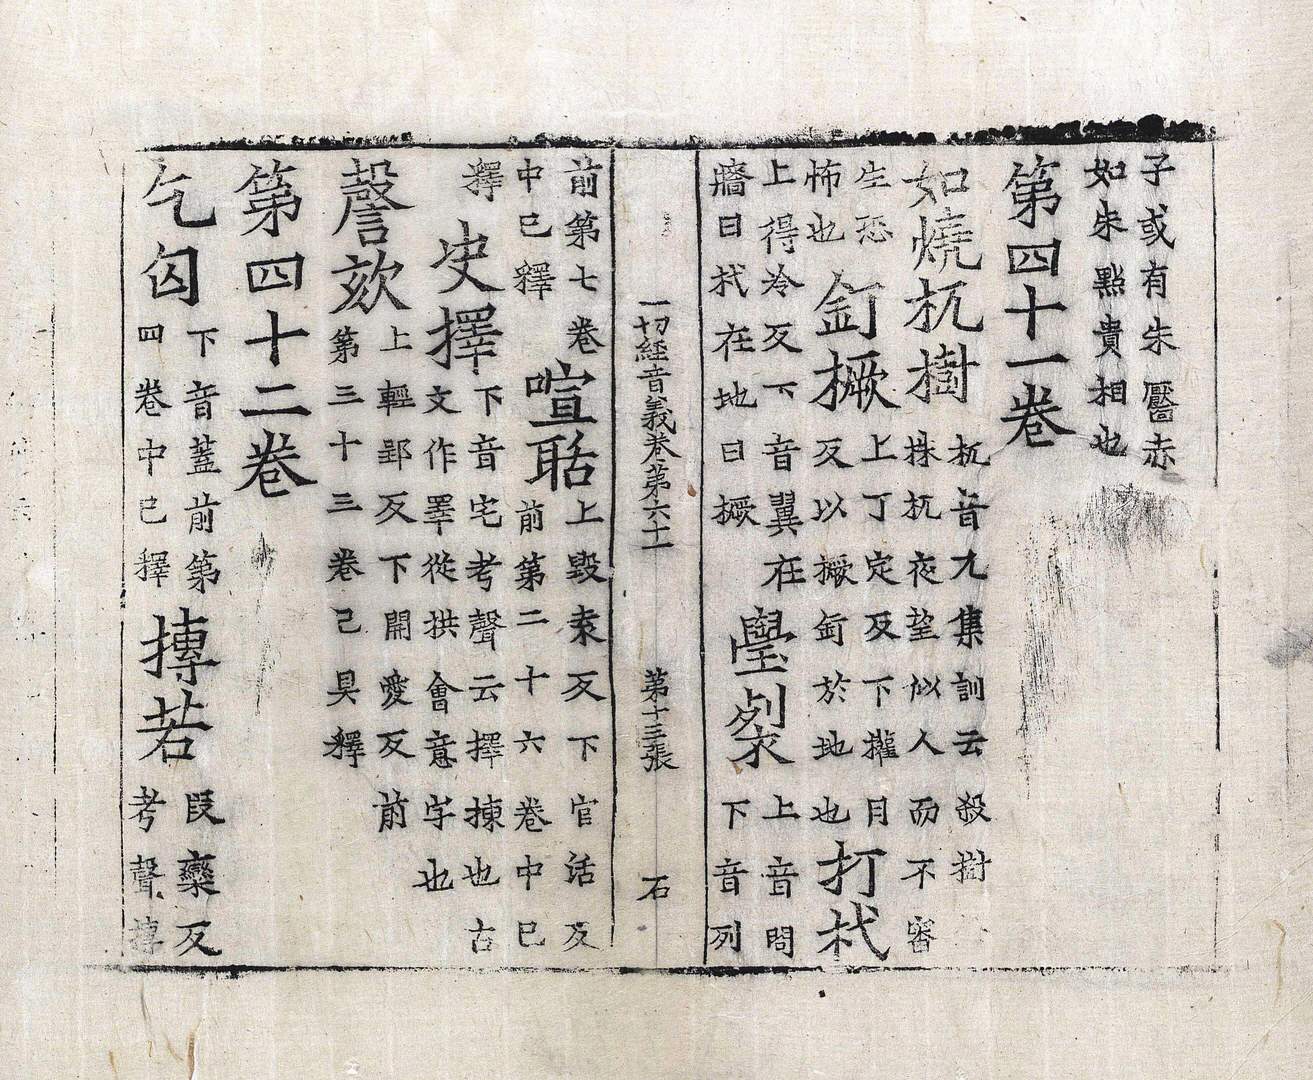 子或有朱黶赤
如朱點貴相也
第四十一卷
如燒杌樹
杌音兀集訓云殺樹
株杌夜望似人而不審
生恐
怖也
釘橛
上丁定反下攉月
反以橛釘於地也
打杙
上得冷反下音翼在
牆曰杙在地曰橛
璺裂
上音問
下音列
一切経音義卷第六十一 第十三張 石
前第七卷
中已釋
喧聒
上毀袁反下官活反
前第二十六卷中已
釋
史擇
下音宅考聲云擇揀也古
文作睪從拱會意字也
謦欬
上輕郢反下開愛反前
第三十三卷已具釋
第四十二卷
乞匃
下音蓋前第
四卷中已釋
摶若
段欒反
考聲摶